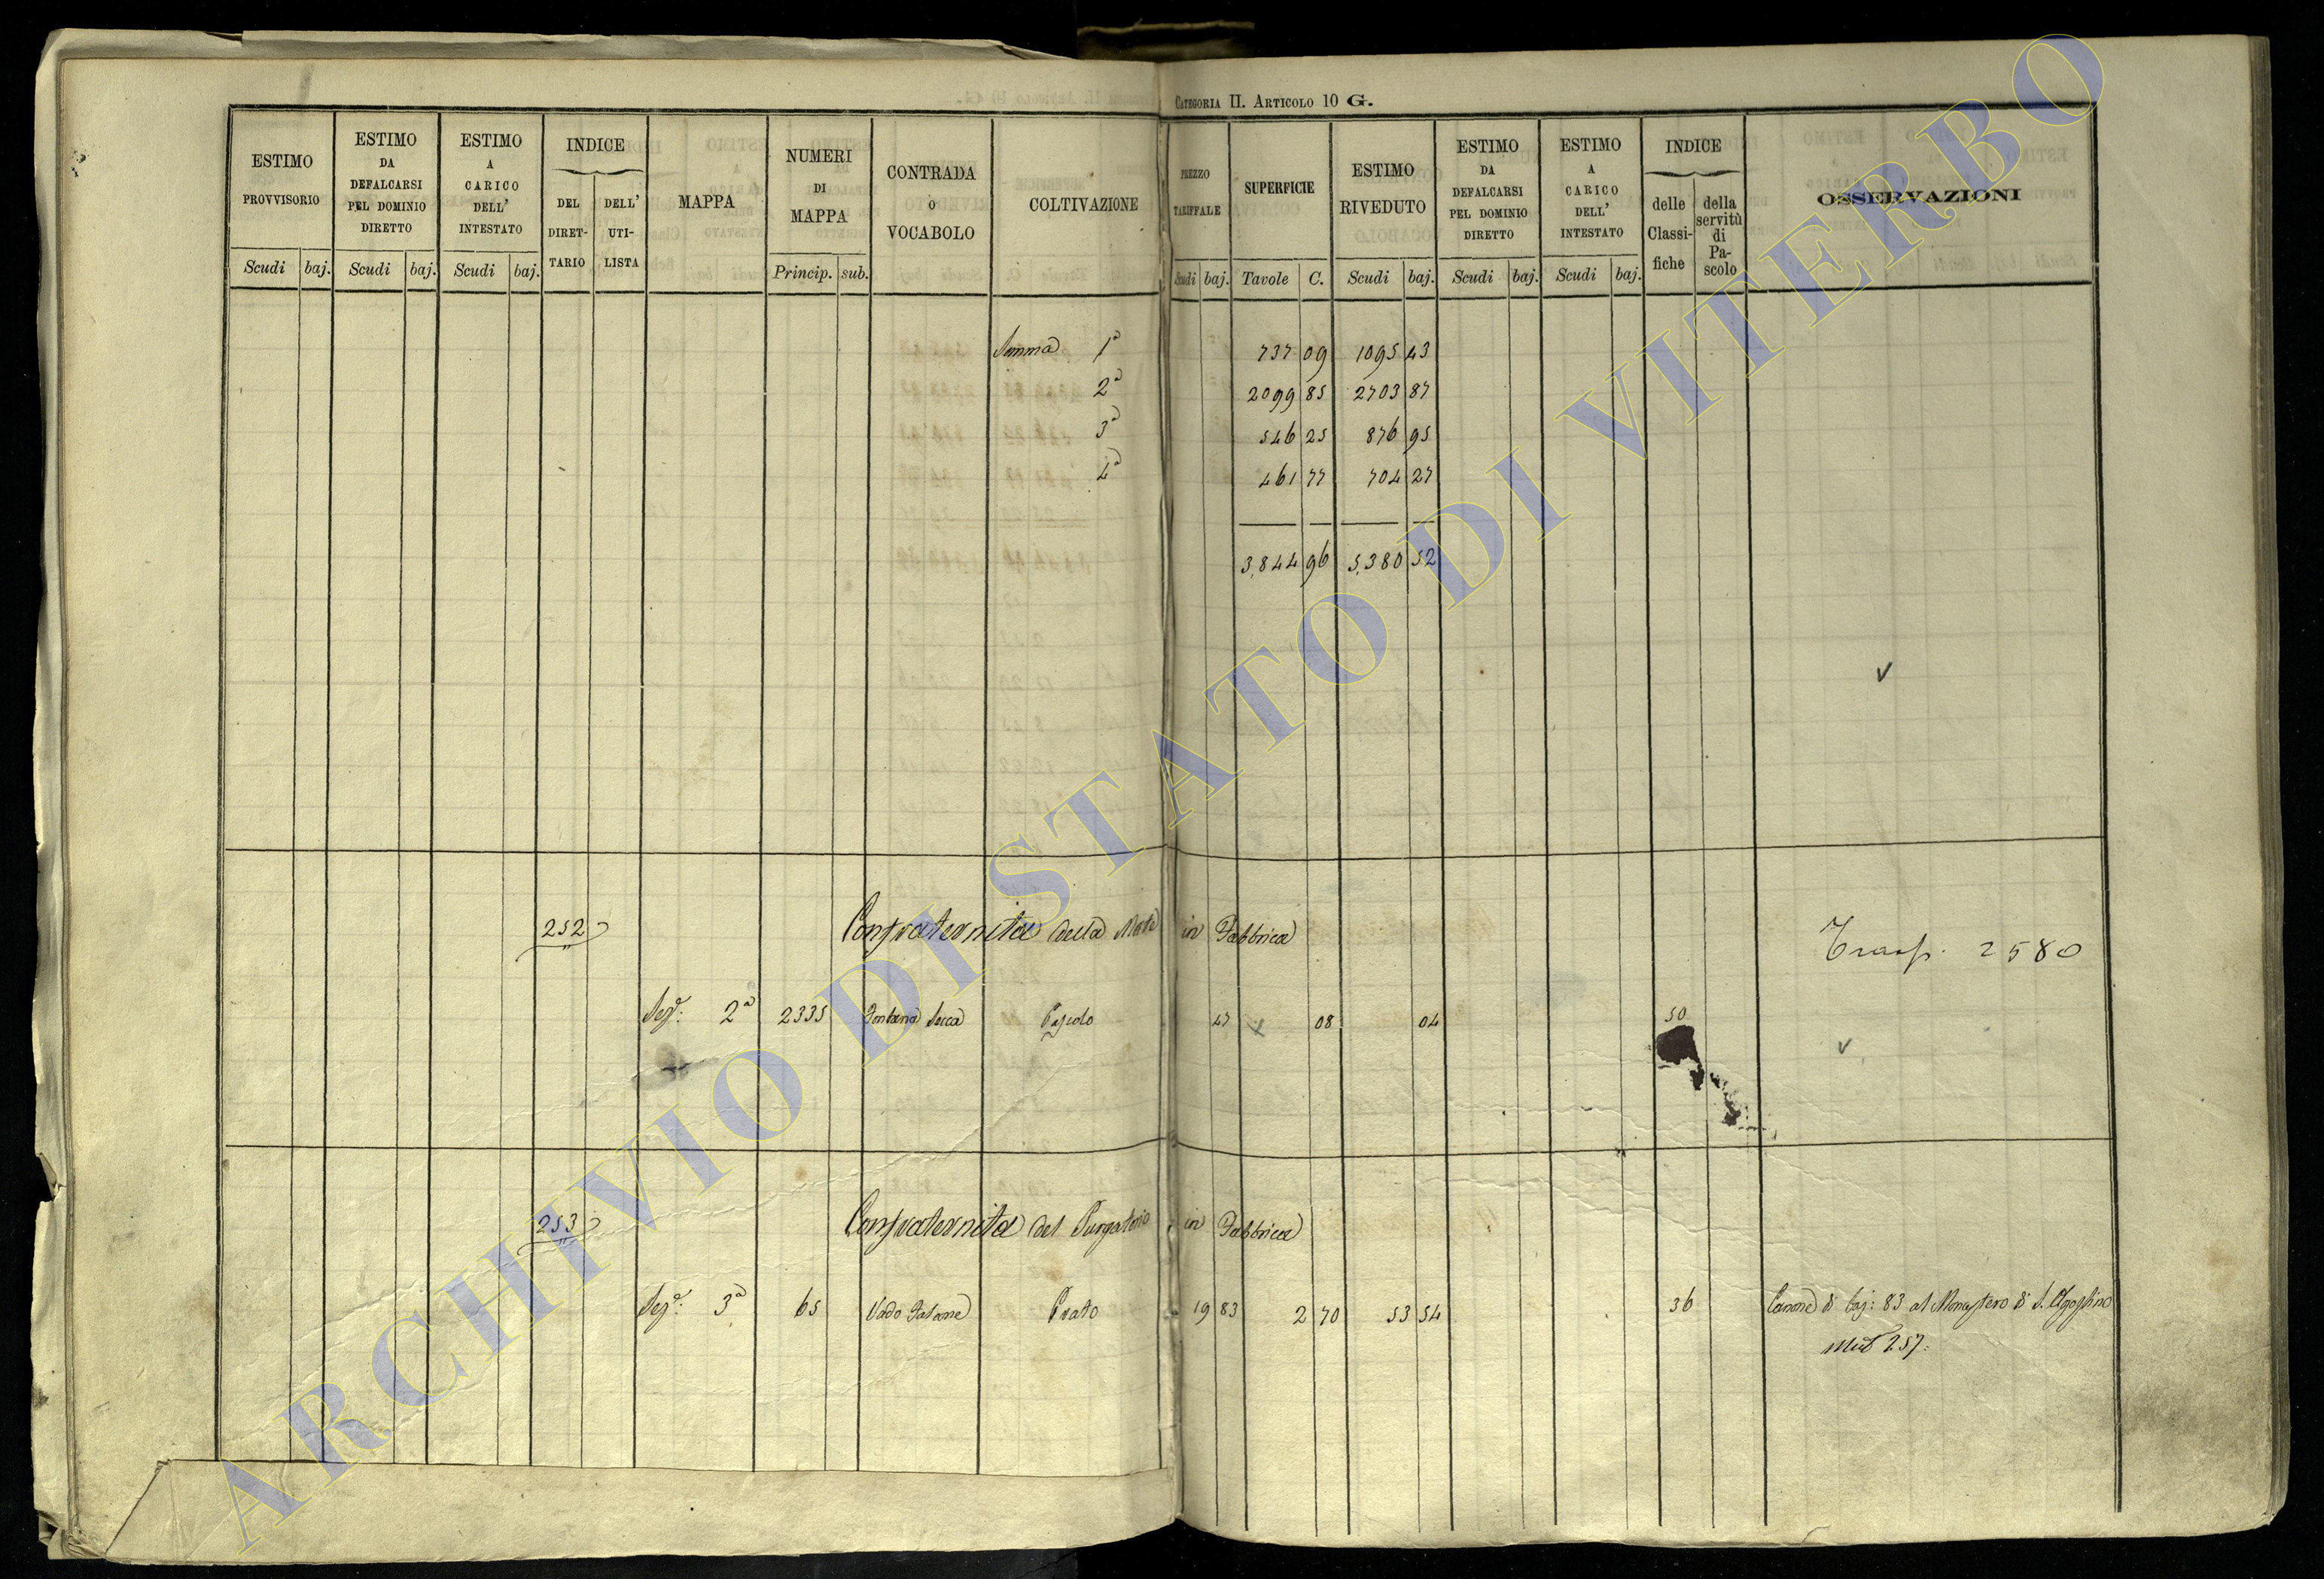 CATEGORIA II. ARTICOLO 10 G.
ESTIMO PROVVISORIO Scudi baj.
ESTIMO DA DEFALCARSI PEL DOMINIO DIRETTO Scudi baj.
ESTIMO A CARICO DELL' INTESTATO Scudi baj.
INDICE DEL DIRET- TARIO DELL' UTI- LISTA
MAPPA
NUMERI DI MAPPA Princip. sub.
CONTRADA o VOCABOLO
COLTIVAZIONE
PREZZO TARIFFALE Scudi baj.
SUPERFICIE Tavole C.
ESTIMO RIVEDUTO Scudi baj.
ESTIMO DA DEFALCARSI PEL DOMINIO DIRETTO Scudi baj.
ESTIMO A CARICO DELL' INTESTATO Scudi baj.
INDICE delle Classi- fiche della servitù di Pa- scolo
OSSERVAZIONI
Somma 1ª 737 09 1095 43
2ª 2099 85 2703 87
3ª 546 25 876 95
4ª 461 77 704 27
3,844 96 5,380 52
252 Confraternita della Morte in Fabbrica
Trasp. 2580
Sez.e: 2ª 2335 Fontana Secca Pascolo 47 08 04 50
253 Confraternita del Purgatorio in Fabbrica
Sez.e: 3ª 65 Vado Prato 19 83 2 70 53 54 36 Canone di baj: 83 al Monastero di S. Agostino
257.
ARCHIVIO DI STATO DI VITERBO